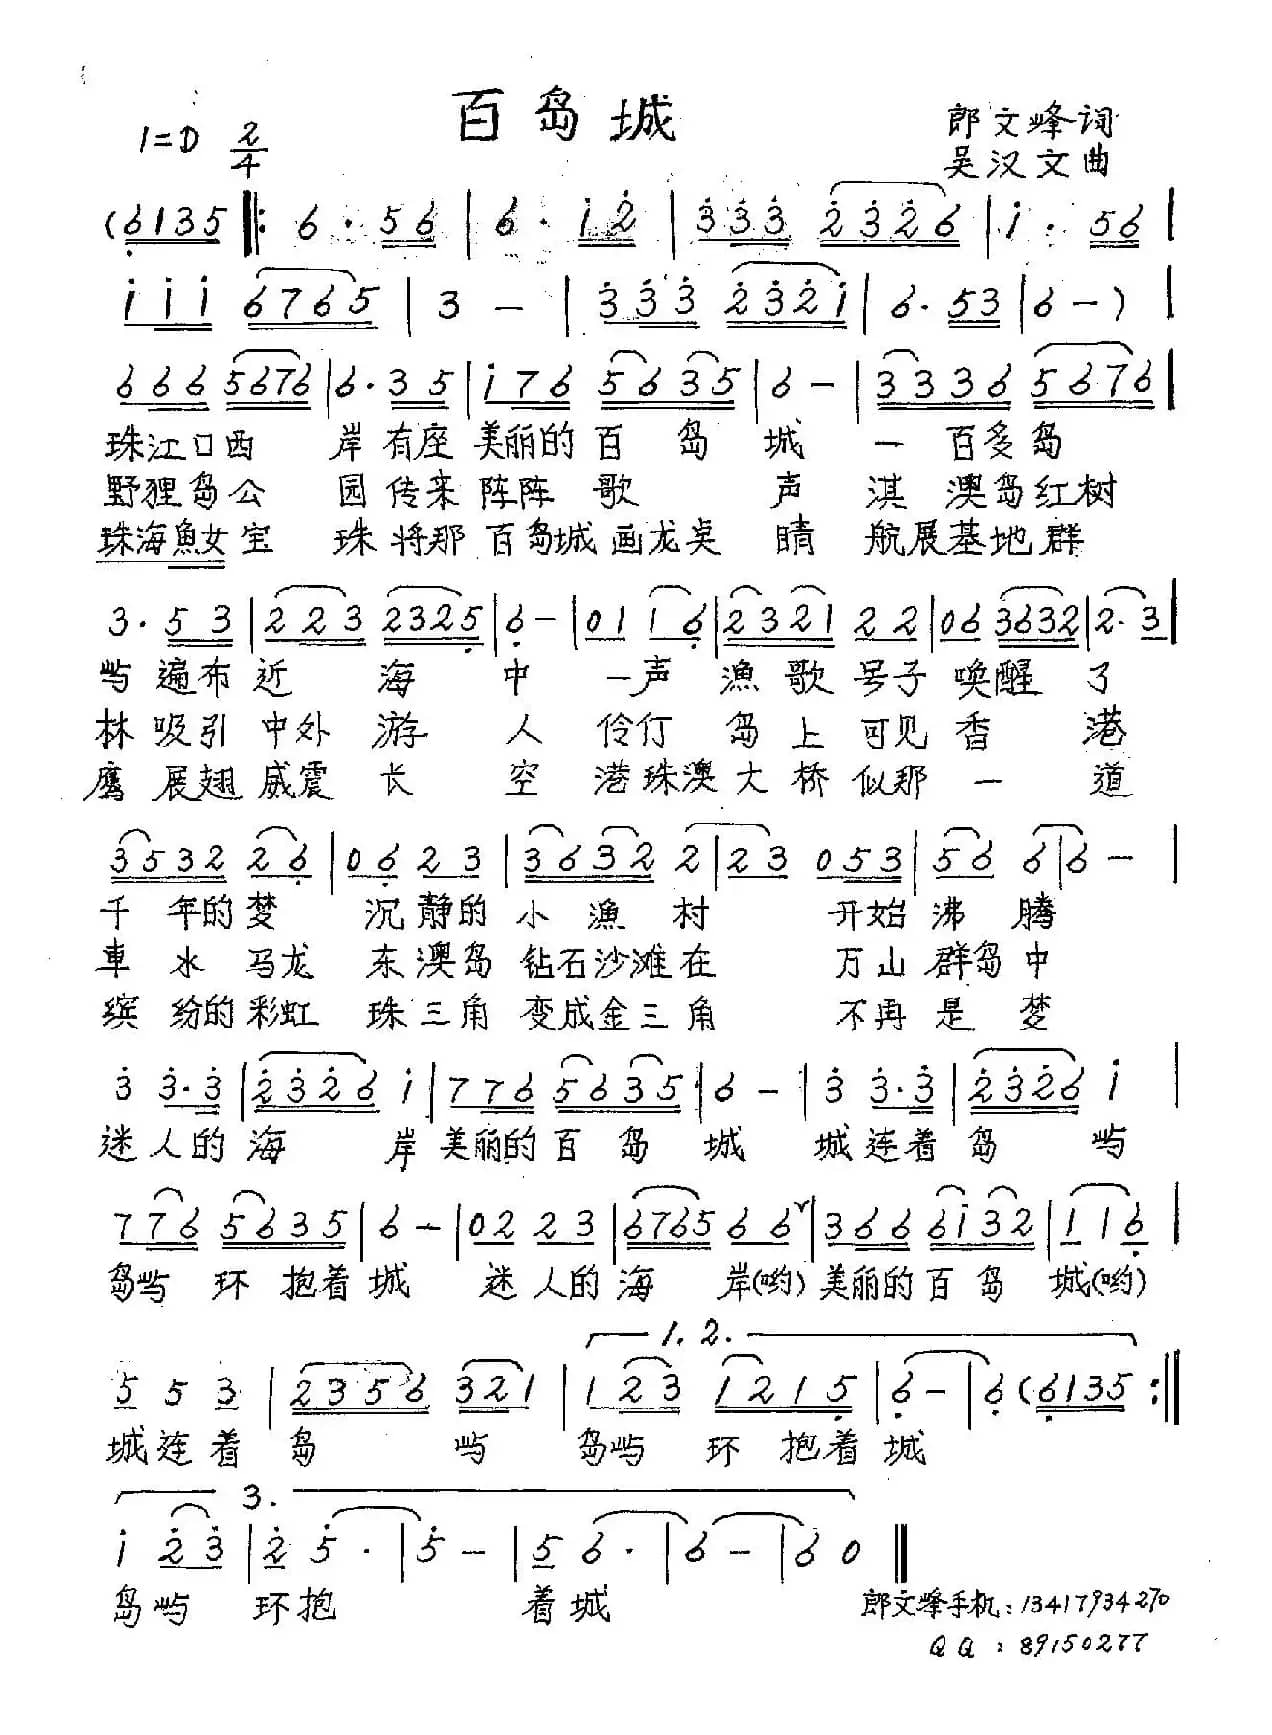 百岛城
1=D 2/4
郎文峰词
吴汉文曲
(6135 ‖: 6· 56 | 6· i2 | 333 2326 | i· 56 |
iii 6765 | 3 - | 333 2321 | 6· 53 | 6 - ) |
666 5676 | 6· 35 | i76 5635 | 6 - | 3336 5676 |
珠江口西 岸有座 美丽的百 岛 城 一 百多岛
野狸岛公 园传来 阵阵 歌 声 淇 澳岛红树
珠海魚女宝 珠将那 百岛城画龙点 睛 航展基地群
3· 53 | 223 2325 | 6 - | 01 16 | 2321 22 | 06 3632 | 2· 3 |
屿 遍布 近 海 中 一声 漁歌 号子 唤醒 了
林 吸引 中外 游 人 伶仃 岛上 可见 香 港
鹰 展翅 威震 长 空 港珠澳大桥 似那 一 道
3532 26 | 06 23 | 3632 2 | 23 053 | 56 6 | 6 - |
千 年的梦 沉静的 小漁 村 开始 沸 腾
車 水 马龙 东澳岛 钻石沙滩在 万山 群岛中
缤 纷的彩虹 珠三角 变成金三角 不再 是 梦
3 3·3 | 2326 i | 776 5635 | 6 - | 3 3·3 | 2326 i |
迷 人的 海 岸 美丽的百 岛 城 城 连着 岛 屿
776 5635 | 6 - | 02 23 | 6765 66 | 366 6i32 | 116 |
岛屿 环 抱着 城 迷 人的 海 岸(哟) 美丽的百 岛 城(哟)
1.2.
5 5 3 | 2356 321 | 123 1215 | 6 - | 6 (6135 :‖
城连着 岛 屿 岛屿 环 抱着 城
3.
i 23 | 2 5· | 5 - | 5 6· | 6 - | 6 0 ‖
岛屿 环抱 着城
郎文峰手机:13417934270
QQ:89150277